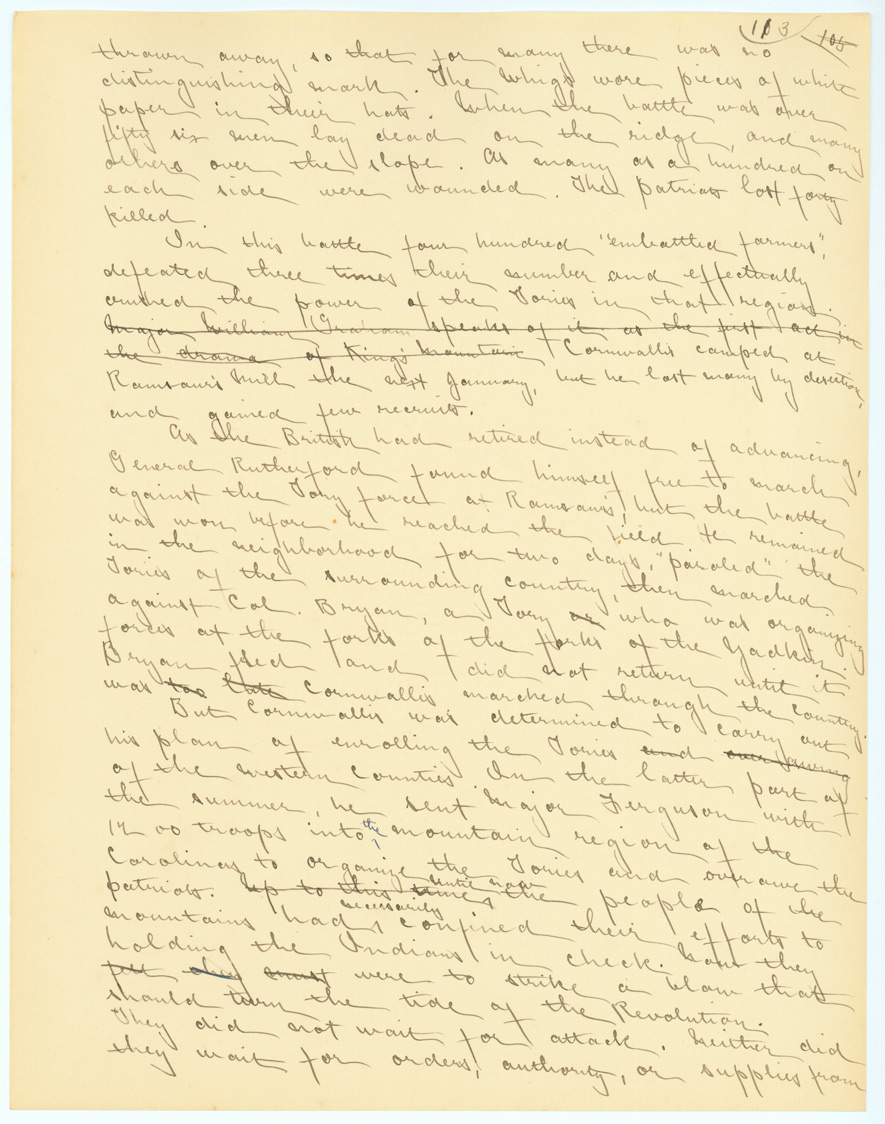 113 105
thrown away, so that for many there was no
distinguishing mark. The Whigs wore pieces of white
paper in their hats. When the battle was over
fifty six men lay dead on the ridge, and many
others over the slope. As many as a hundred on
each side were wounded. The Patriots lost forty
killed.
In this battle four hundred "embattled farmers",
defeated three times their number and effectually
crushed the power of the Tories in that region.
Major William Graham speaks of it as the first act in
the drama of King's Mountain Cornwallis camped at
Ramsaur's Mill the next January, but he lost many by desertion,
and gained few recruits.
As the British had retired instead of advancing,
General Rutherford found himself free to march
against the Tory force at Ramsaur's, but the battle
was won before he reached the field He remained
in the neighborhood for two days, "paroled" the
Tories of the surrounding country, then marched
against Col. Bryan, a Tory who was organizing
forces at the forks of the forks of the Yadkin.
Bryan fled and did not return until it
was too late Cornwallis marched through the country.
But Cornwallis was determined to carry out
his plan of enrolling the Tories and over awing
of the western counties In the latter part of
the summer, he sent Major Ferguson with
1200 troops into the mountain region of the
Carolinas to organize the Tories and overawe the
patriots. Up to this times until now the people of the
mountains had necessarily confined their efforts to
holding the Indians in check. Now they
were to strike a blow that
should turn the tide of the Revolution.
They did not wait for attack. Neither did
they wait for orders, authority, or supplies from